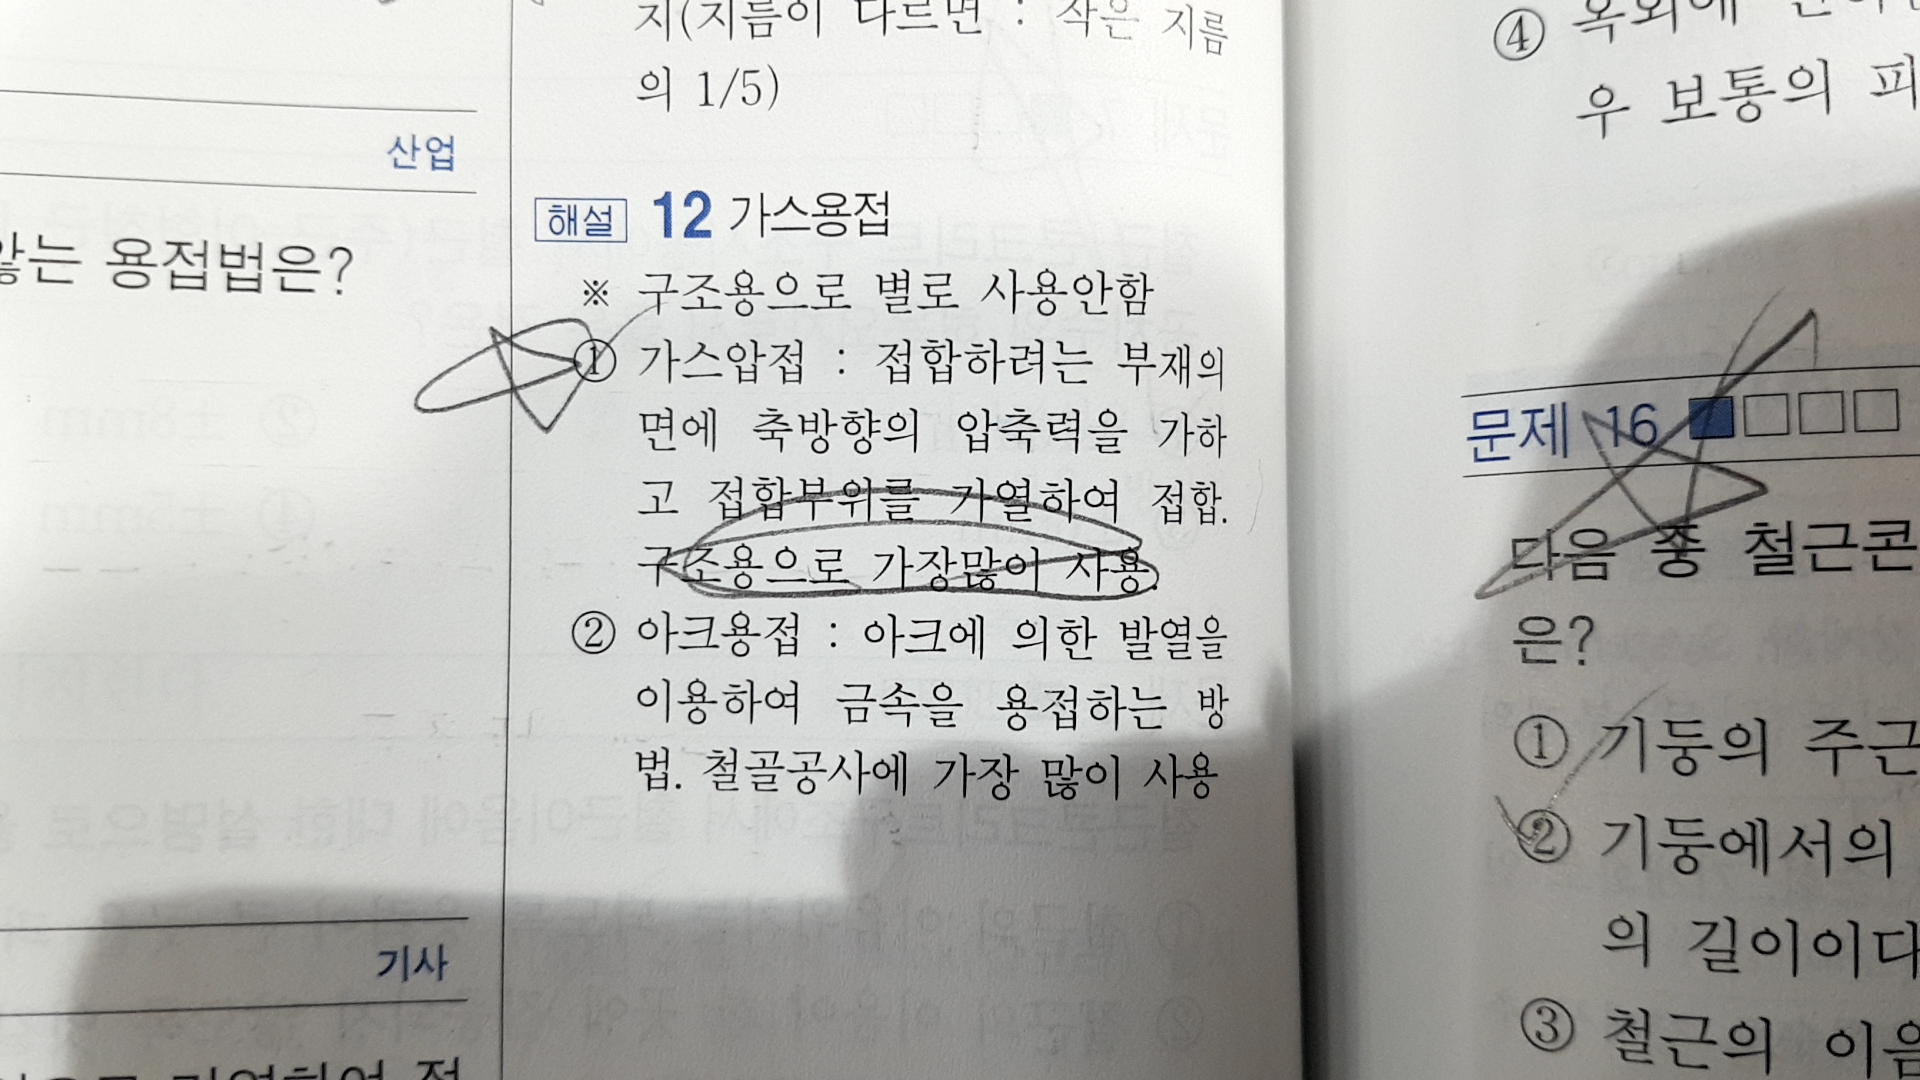 산업
용접법은?
기사
지(지름이 다르면 : 작은 지름
의 1/5)
해설 12 가스용접
※ 구조용으로 별로 사용안함
① 가스압접 : 접합하려는 부재의
면에 축방향의 압축력을 가하
고 접합부위를 가열하여 접합.
구조용으로 가장많이 사용.
② 아크용접 : 아크에 의한 발열을
이용하여 금속을 용접하는 방
법. 철골공사에 가장 많이 사용
④ 옥외에
우 보통의 피
문제 16
다음 중 철근콘
은?
① 기둥의 주근
② 기둥에서의
의 길이이다
③ 철근의 이음